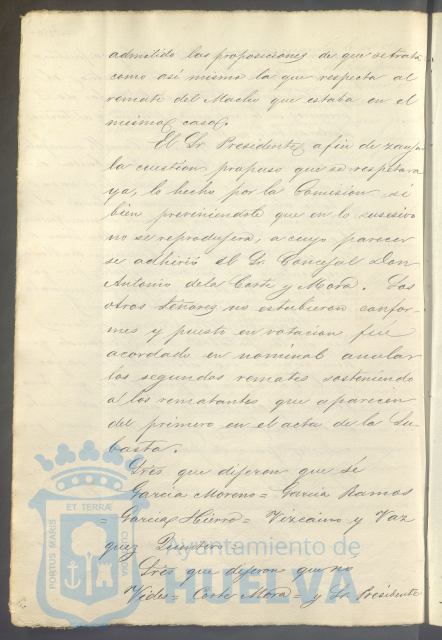 admitido las proposiciones de que se trata
como asi mismo la que respecta al
remate del Macho que estaba en el
mismo caso.
El Sr Presidente a fin de zanjar
la cuestion propuso que se respetara
ya, lo hecho por la Comision, si
bien previniendole que en lo susesivo
no se reprodujera, a cuyo parecer
se adhirió el Sr. Concejal Don
Antonio de la Corte y Mora. Los
otros Señores no estubieron confor-
mes y puesto en votacion fué
acordado en nominal anular
los segundos remates sosteniendo
a los rematantes que aparecen
del primero en el acta de la Su-
basta.
Sres que dijeron que sí
Garcia Moreno = Garcia Ramos
= Garcia Hierro = Vizcaino y Vaz
quez Quintero =
Sres que dijeron que no
Vides = Corte Mora = y Sr Presidente
PORTUS MARIS ET TERRÆ CUSTODIA
Ayuntamiento de
HUELVA